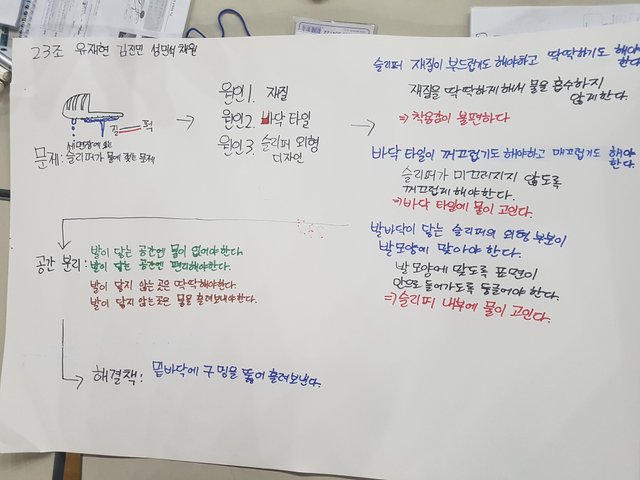 23조 유재현 김진민 성민석 채원
질퍽
세면장에 있는
문제: 슬리퍼가 물에 젖는 문제
원인1. 재질
원인2. 바닥 타일
원인3. 슬리퍼 외형
디자인
슬리퍼 재질이 부드럽기도 해야하고 딱딱하기도 해야
한다.
재질을 딱딱하게 해서 물을 흡수하지
않게한다.
⇒ 착용감이 불편하다
바닥 타일이 꺼끄럽기도 해야하고 매끄럽기도 해야
한다.
슬리퍼가 미끄러지지 않도록
꺼끄럽게 해야한다.
⇒ 바닥 타일에 물이 고인다.
발바닥이 닿는 슬리퍼의 외형 부분이
발모양에 맞아야 한다.
발모양에 맞도록 표면이
안으로 들어가도록 둥글어야 한다.
⇒ 슬리퍼 내부에 물이 고인다.
공간 분리: 발이 닿는 공간엔 물이 없어야한다.
발이 닿는 공간엔 편리해야한다.
발이 닿지 않는곳은 딱딱해야한다.
발이 닿지 않는곳은 물을 흘려보내야한다.
해결책: 밑바닥에 구멍을 뚫어 흘려보낸다.